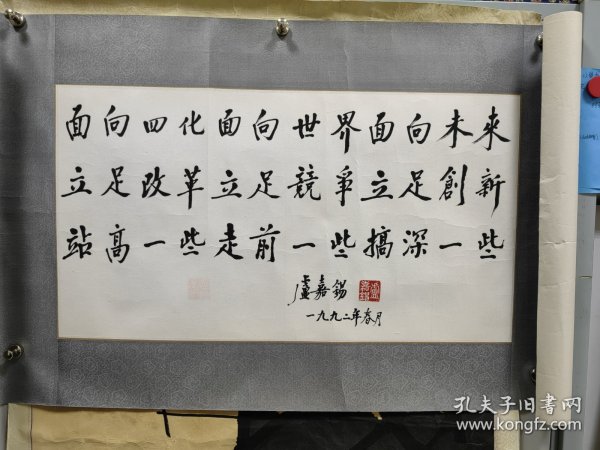 面向四化面向世界面向未來
立足改革立足競爭立足創新
站高一些走前一些搞深一些
盧嘉錫
盧嘉錫
一九九二年春月
孔夫子旧書网
kongfz.com